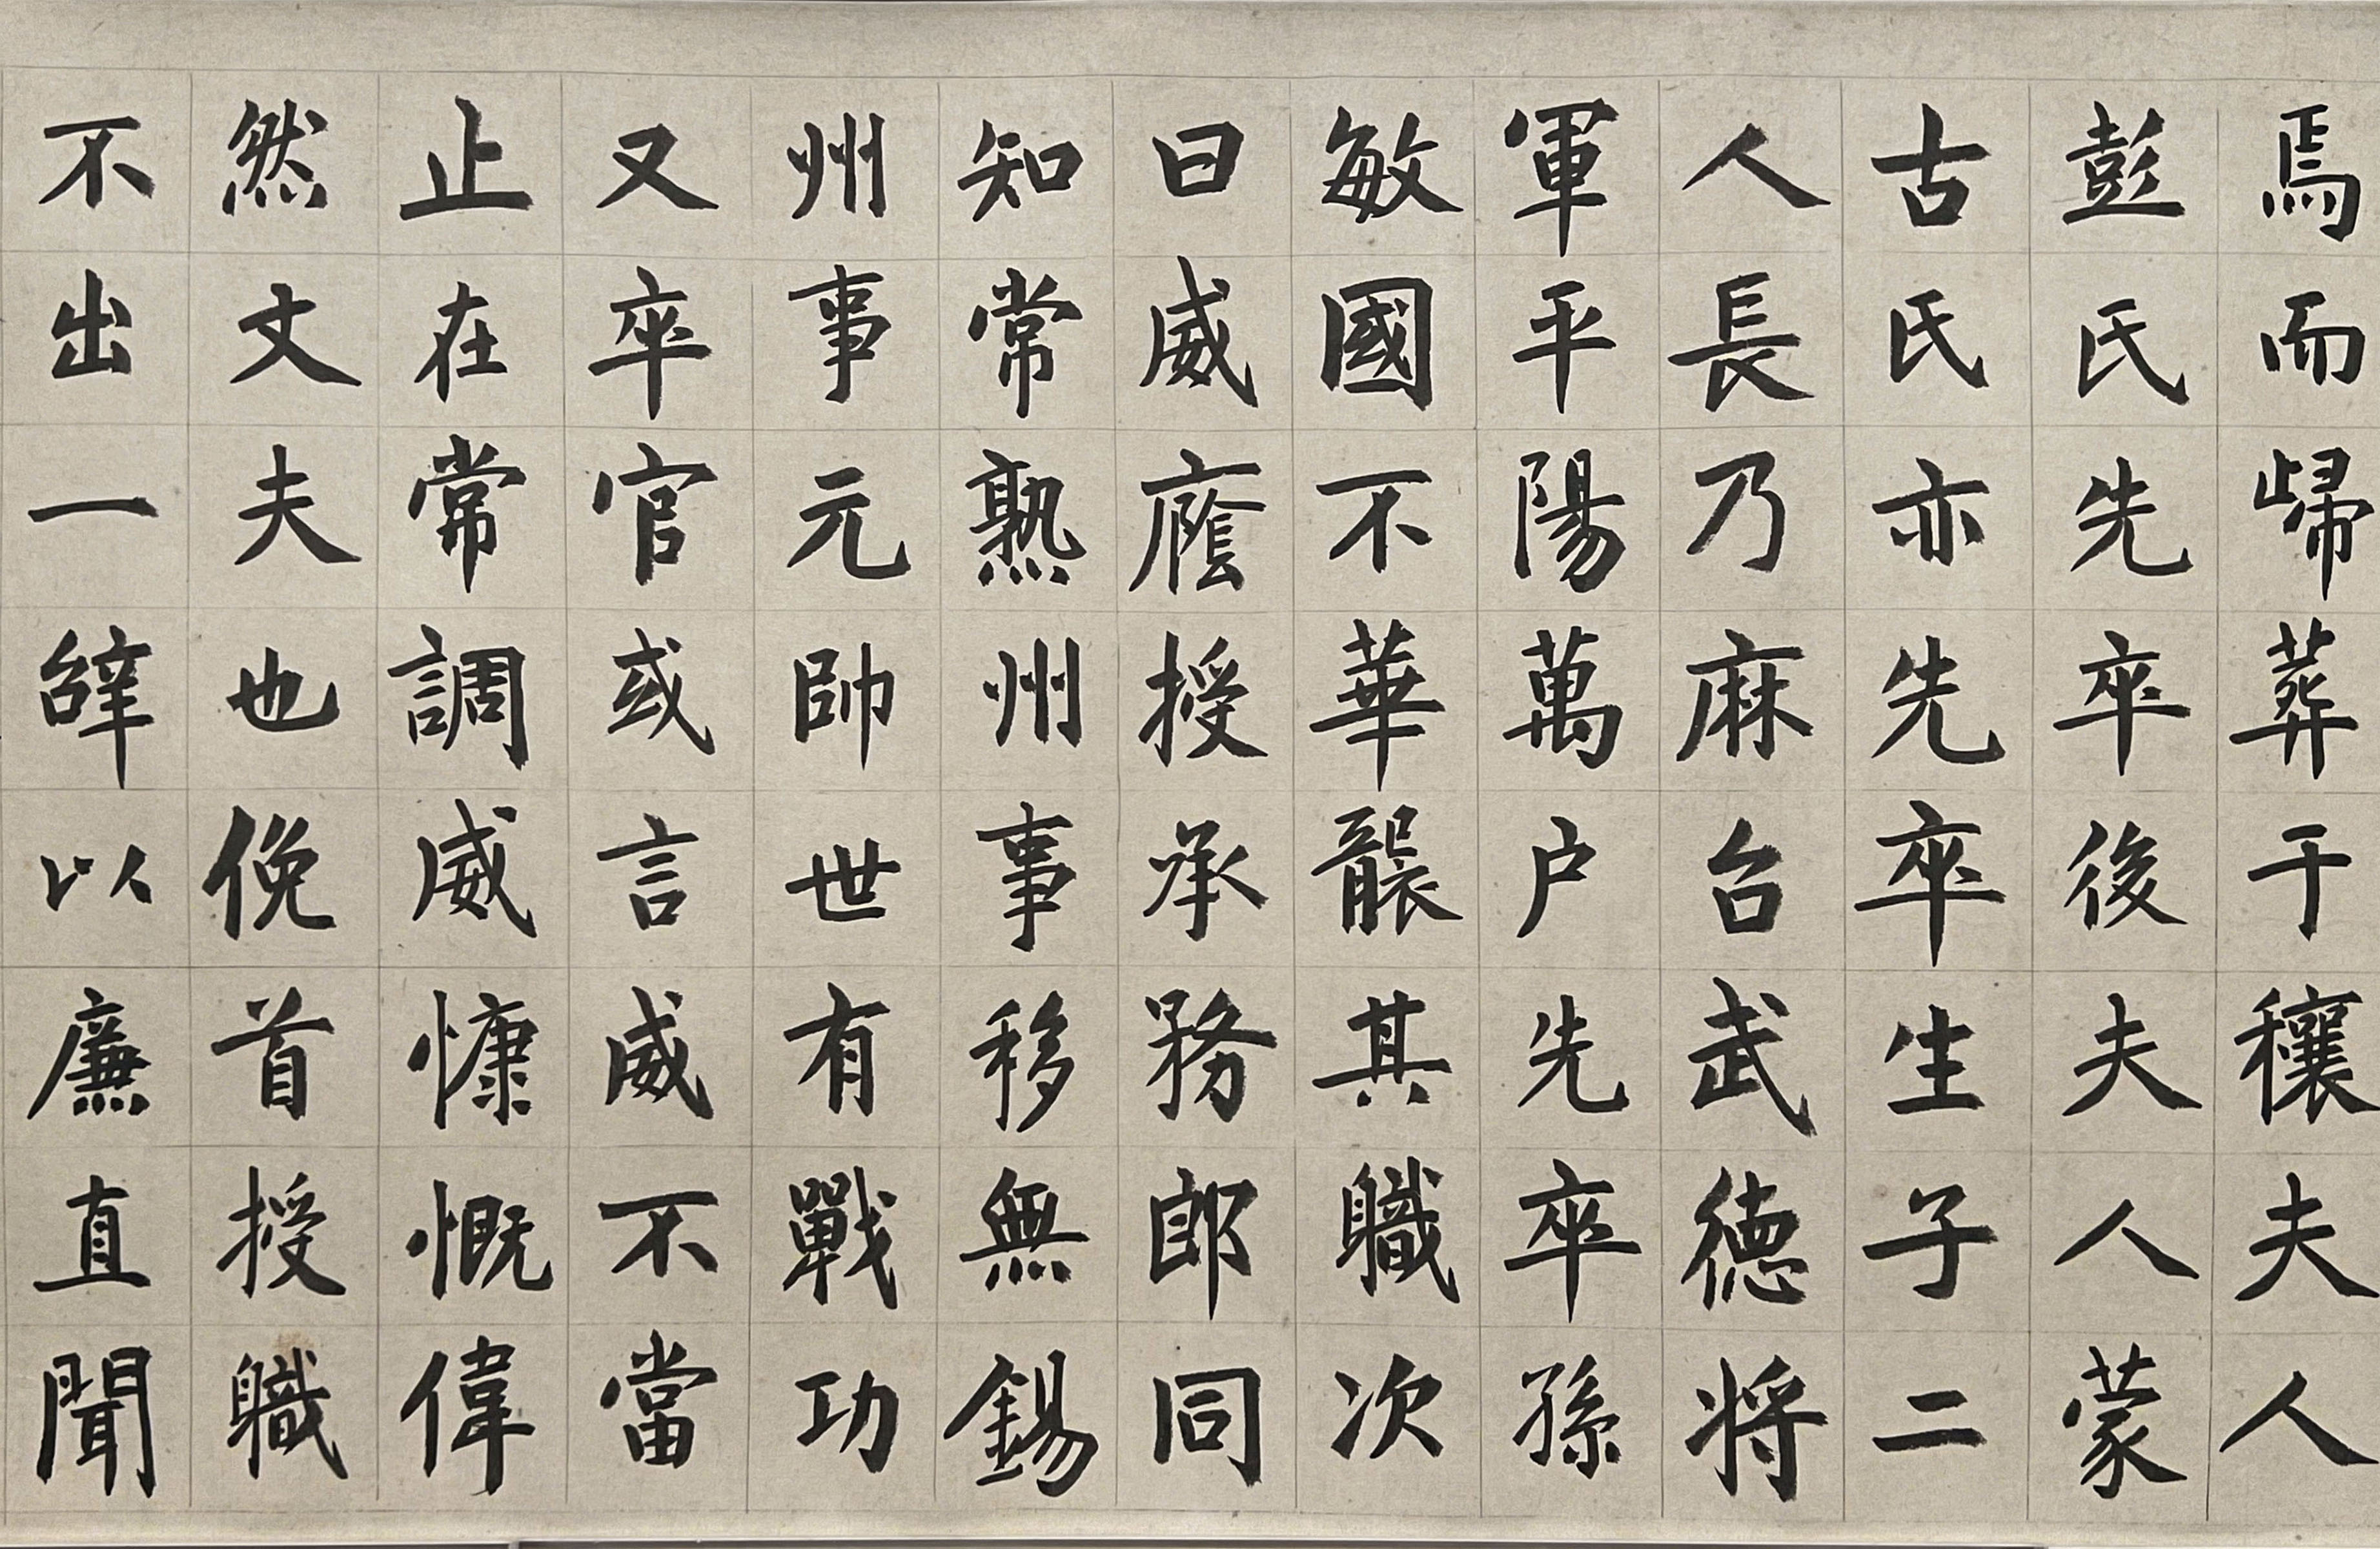 焉而歸葬于穰夫人
彭氏先卒後夫人蒙
古氏亦先卒生子二
人長乃麻台武德将
軍平陽萬户先卒孫
敏國不華襲其職次
曰威廕授承務郎同
知常熟州事移無錫
州事元帥世有戰功
又卒官或言威不當
止在常調威慷慨偉
然丈夫也俛首授職
不出一辝以廉直聞